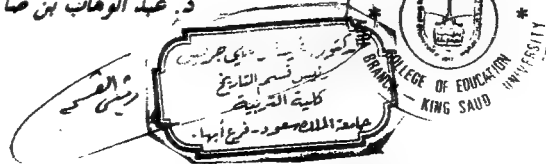 د. عبد الوهاب بن صا
رئيس قسم التاريخ
كلية التربية
جامعة الملك سعود - فرع أبها.
رئيس القسم
COLLEGE OF EDUCATION
BRANCH - KING SAUD UNIVERSITY